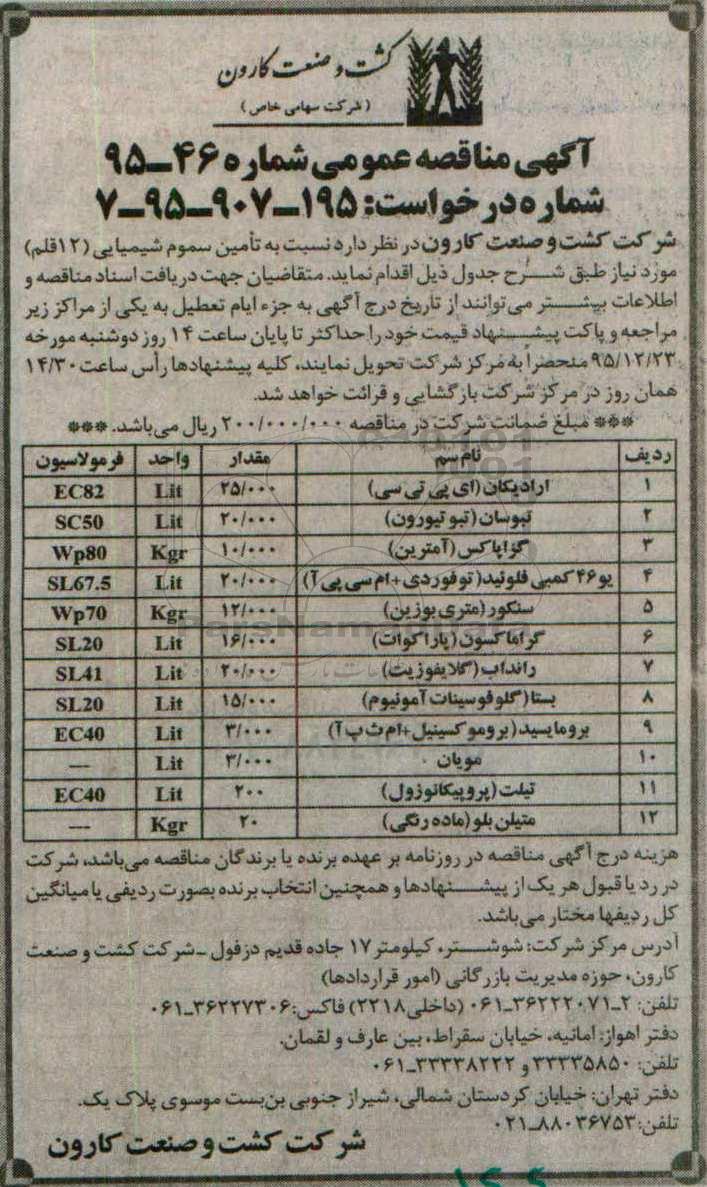 کشت و صنعت کارون
(شرکت سهامی خاص)
آگهی مناقصه عمومی شماره ۴۶ـ۹۵
شماره درخواست: ۱۹۵ـ۹۰۷ـ۹۵ـ۷
شرکت کشت و صنعت کارون در نظر دارد نسبت به تأمین سموم شیمیایی (۱۲قلم)
مورد نیاز طبق شرح جدول ذیل اقدام نماید. متقاضیان جهت دریافت اسناد مناقصه و
اطلاعات بیشتر می‌توانند از تاریخ درج آگهی به جزء ایام تعطیل به یکی از مراکز زیر
مراجعه و پاکت پیشنهاد قیمت خود را حداکثر تا پایان ساعت ۱۴ روز دوشنبه مورخه
۹۵/۱۲/۲۳ منحصراً به مرکز شرکت تحویل نمایند، کلیه پیشنهادها رأس ساعت ۱۴/۳۰
همان روز در مرکز شرکت بازگشایی و قرائت خواهد شد.
*** مبلغ ضمانت شرکت در مناقصه ۲۰۰/۰۰۰/۰۰۰ ریال می‌باشد. ***
ردیف نام سم مقدار واحد فرمولاسیون
۱ ارادیکان (ای پی تی سی) ۲۵/۰۰۰ Lit EC82
۲ تبوسان (تبو تیورون) ۲۰/۰۰۰ Lit SC50
۳ گزاپاکس (آمترین) ۱۰/۰۰۰ Kgr Wp80
۴ یو۴۶ کمبی فلوئید (توفوردی+ام سی پی آ) ۲۰/۰۰۰ Lit SL67.5
۵ سنکور (متری بوزین) ۱۲/۰۰۰ Kgr Wp70
۶ گراماکسون (پاراکوات) ۱۶/۰۰۰ Lit SL20
۷ رانداب (گلایفوزیت) ۲۰/۰۰۰ Lit SL41
۸ بستا (گلوفوسینات آمونیوم) ۱۵/۰۰۰ Lit SL20
۹ برومایسید (بروموکسینیل+ام ث پ آ) ۳/۰۰۰ Lit EC40
۱۰ مویان ۳/۰۰۰ Lit ---
۱۱ تیلت (پروپیکانوزول) ۲۰۰ Lit EC40
۱۲ متیلن بلو (ماده رنگی) ۲۰ Kgr ---
هزینه درج آگهی مناقصه در روزنامه بر عهده برنده یا برندگان مناقصه می‌باشد، شرکت
در رد یا قبول هر یک از پیشنهادها و همچنین انتخاب برنده بصورت ردیفی یا میانگین
کل ردیفها مختار می‌باشد.
آدرس مرکز شرکت: شوشتر، کیلومتر ۱۷ جاده قدیم دزفول ـ شرکت کشت و صنعت
کارون، حوزه مدیریت بازرگانی (امور قراردادها)
تلفن: ۲ـ۳۶۲۲۲۰۷۱ـ۰۶۱ (داخلی ۲۲۱۸) فاکس: ۳۶۲۲۷۳۰۶ـ۰۶۱
دفتر اهواز: امانیه، خیابان سقراط، بین عارف و لقمان.
تلفن: ۳۳۳۳۵۸۵۰ و ۳۳۳۳۸۲۲۲ـ۰۶۱
دفتر تهران: خیابان کردستان شمالی، شیراز جنوبی بن‌بست موسوی پلاک یک.
تلفن: ۸۸۰۳۶۷۵۳ـ۰۲۱
شرکت کشت و صنعت کارون